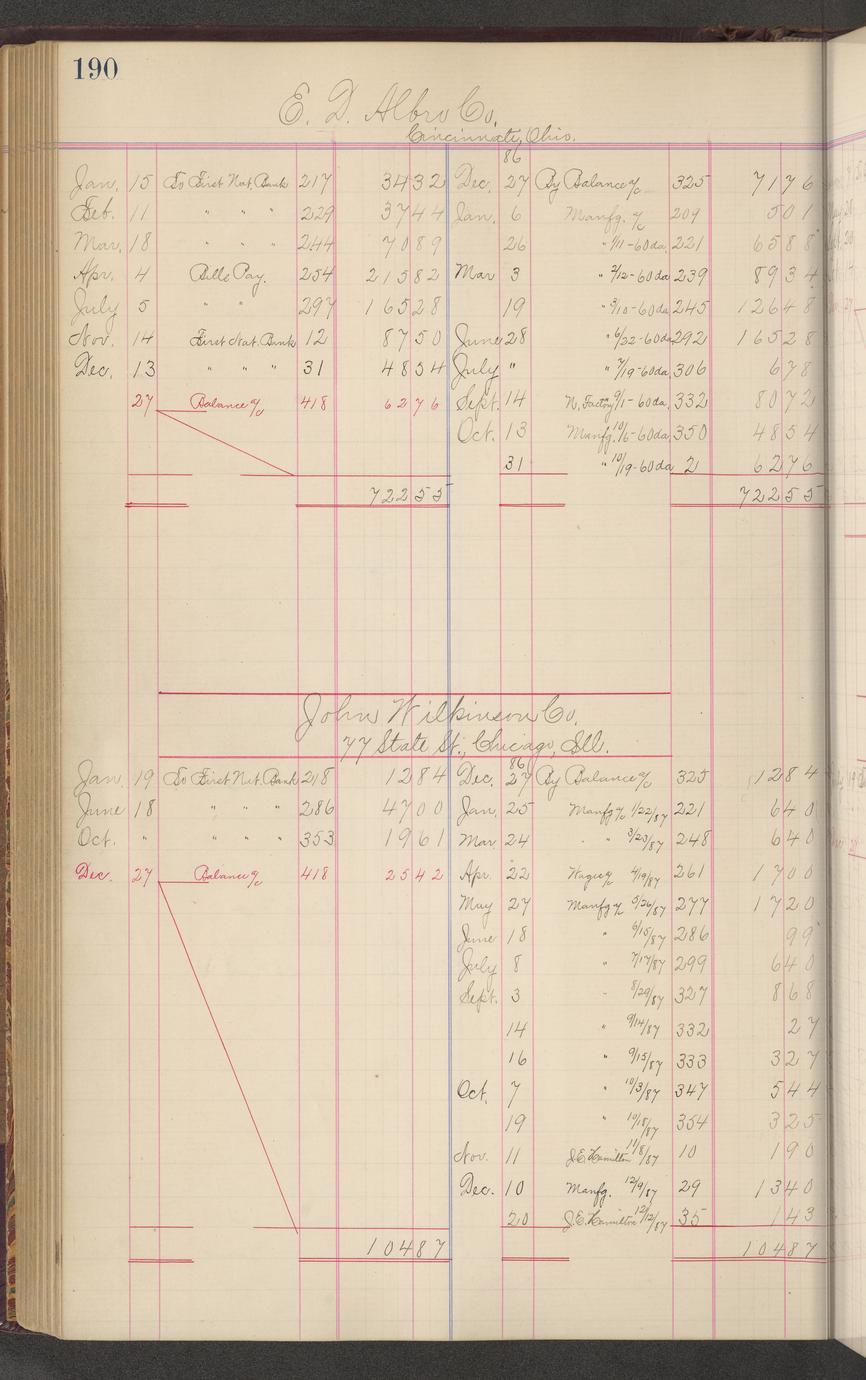 190
E. D. Albro Co.
Cincinnati, Ohio.
86
Jan. 15 To First Nat. Bank 217 3432 Dec. 27 By Balance a/c 325 7176
Feb. 11 " " " 229 3744 Jan. 6 Manfg. a/c 209 501
Mar. 18 " " " 244 7089 26 " 1/11-60da. 221 6588
Apr. 4 Bills Pay. 254 21582 Mar 3 " 2/12-60da 239 8934
July 5 " " 297 16528 19 " 3/10-60da 245 12648
Nov. 14 First Nat. Bank 12 8750 June 28 " 6/22-60da 292 16528
Dec. 13 " " " 31 4854 July " " 7/19-60da 306 678
27 Balance a/c 418 6276 Sept. 14 N. Factory 9/1-60da. 332 8072
Oct. 13 Manfg. 10/6-60da 350 4854
31 " 10/19-60da 2 6276
72255 72255
John Wilkinson Co.
77 State St., Chicago, Ill.
86
Jan. 19 To First Nat. Bank 218 1284 Dec. 27 By Balance a/c 325 1284
June 18 " " " 286 4700 Jan. 25 Manfg a/c 1/22/87 221 640
Oct. " " " " 353 1961 Mar 24 " " 3/23/87 248 640
Dec. 27 Balance a/c 418 2542 Apr. 22 Wages a/c 4/19/87 261 1700
May 27 Manfg a/c 5/26/87 277 1720
June 18 " 6/15/87 286 99
July 8 " 7/17/87 299 640
Sept. 3 " 8/29/87 327 868
14 " 9/14/87 332 27
16 " 9/15/87 333 327
Oct. 7 " 10/3/87 347 544
19 " 10/18/87 354 325
Nov. 11 J.E. Hamilton 11/8/87 10 190
Dec. 10 Manfg. 12/9/87 29 1340
20 J.E. Hamilton 12/12/87 35 143
10487 10487